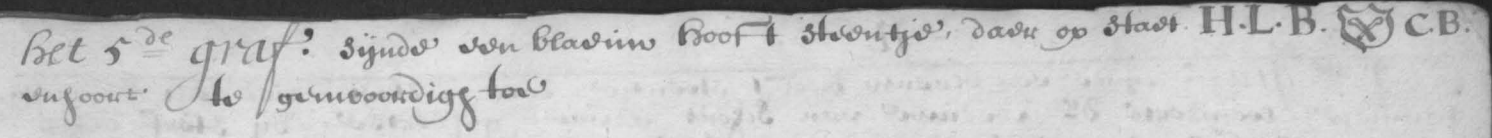 Het 5de graf: zijnde een blauw Hooft steentje, daer op staet H.L.B. C.B.
en hoort te genwoordigh toe